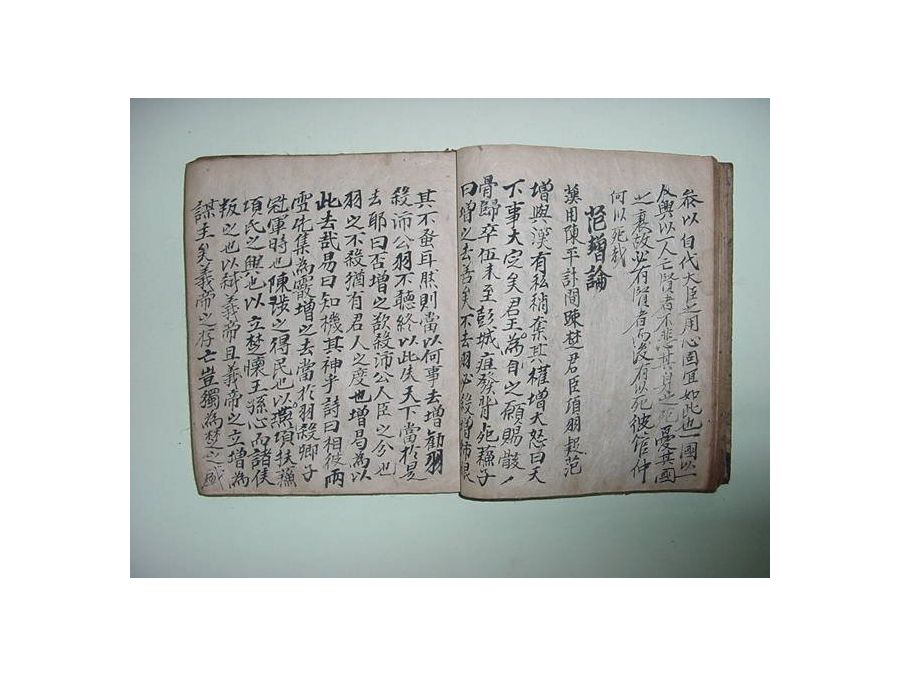 叅以自代大臣之用心固宜如此也一國以一
人興以一人亡賢者不悲其身之死憂其國
之衰故必有賢者而後有以死彼管仲
何以死哉
范增論
漢用陳平計間踈楚君臣項羽起范
增與漢有私稍奪其權增大怒曰天
下事大定矣君王為自之願賜骸
骨歸卒伍未至彭城疽發背死蘇子
曰增之去善矣不去羽必殺增
其不蚤耳然則當以何事去增勸羽
殺沛公羽不聽終以此失天下當於是
去耶曰否增之欲殺沛公人臣之分也
羽之不殺猶有君人之度也增曷為以
此去哉易曰知機其神乎詩曰相彼雨
雪先集為霰增之去當於羽殺卿子
冠軍時也陳涉之得民也以燕項扶蘇
項氏之興也以立楚懷王孫心而諸侯
叛之也以弑義帝且義帝之立增為
謀主矣義帝之存亡豈獨為楚之盛